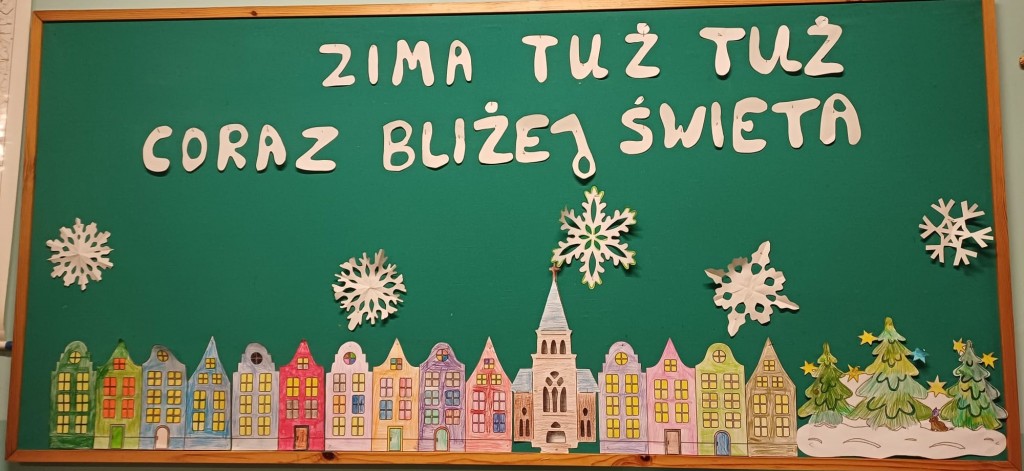 ZIMA TUŻ TUŻ
CORAZ BLIŻEJ ŚWIĘTA